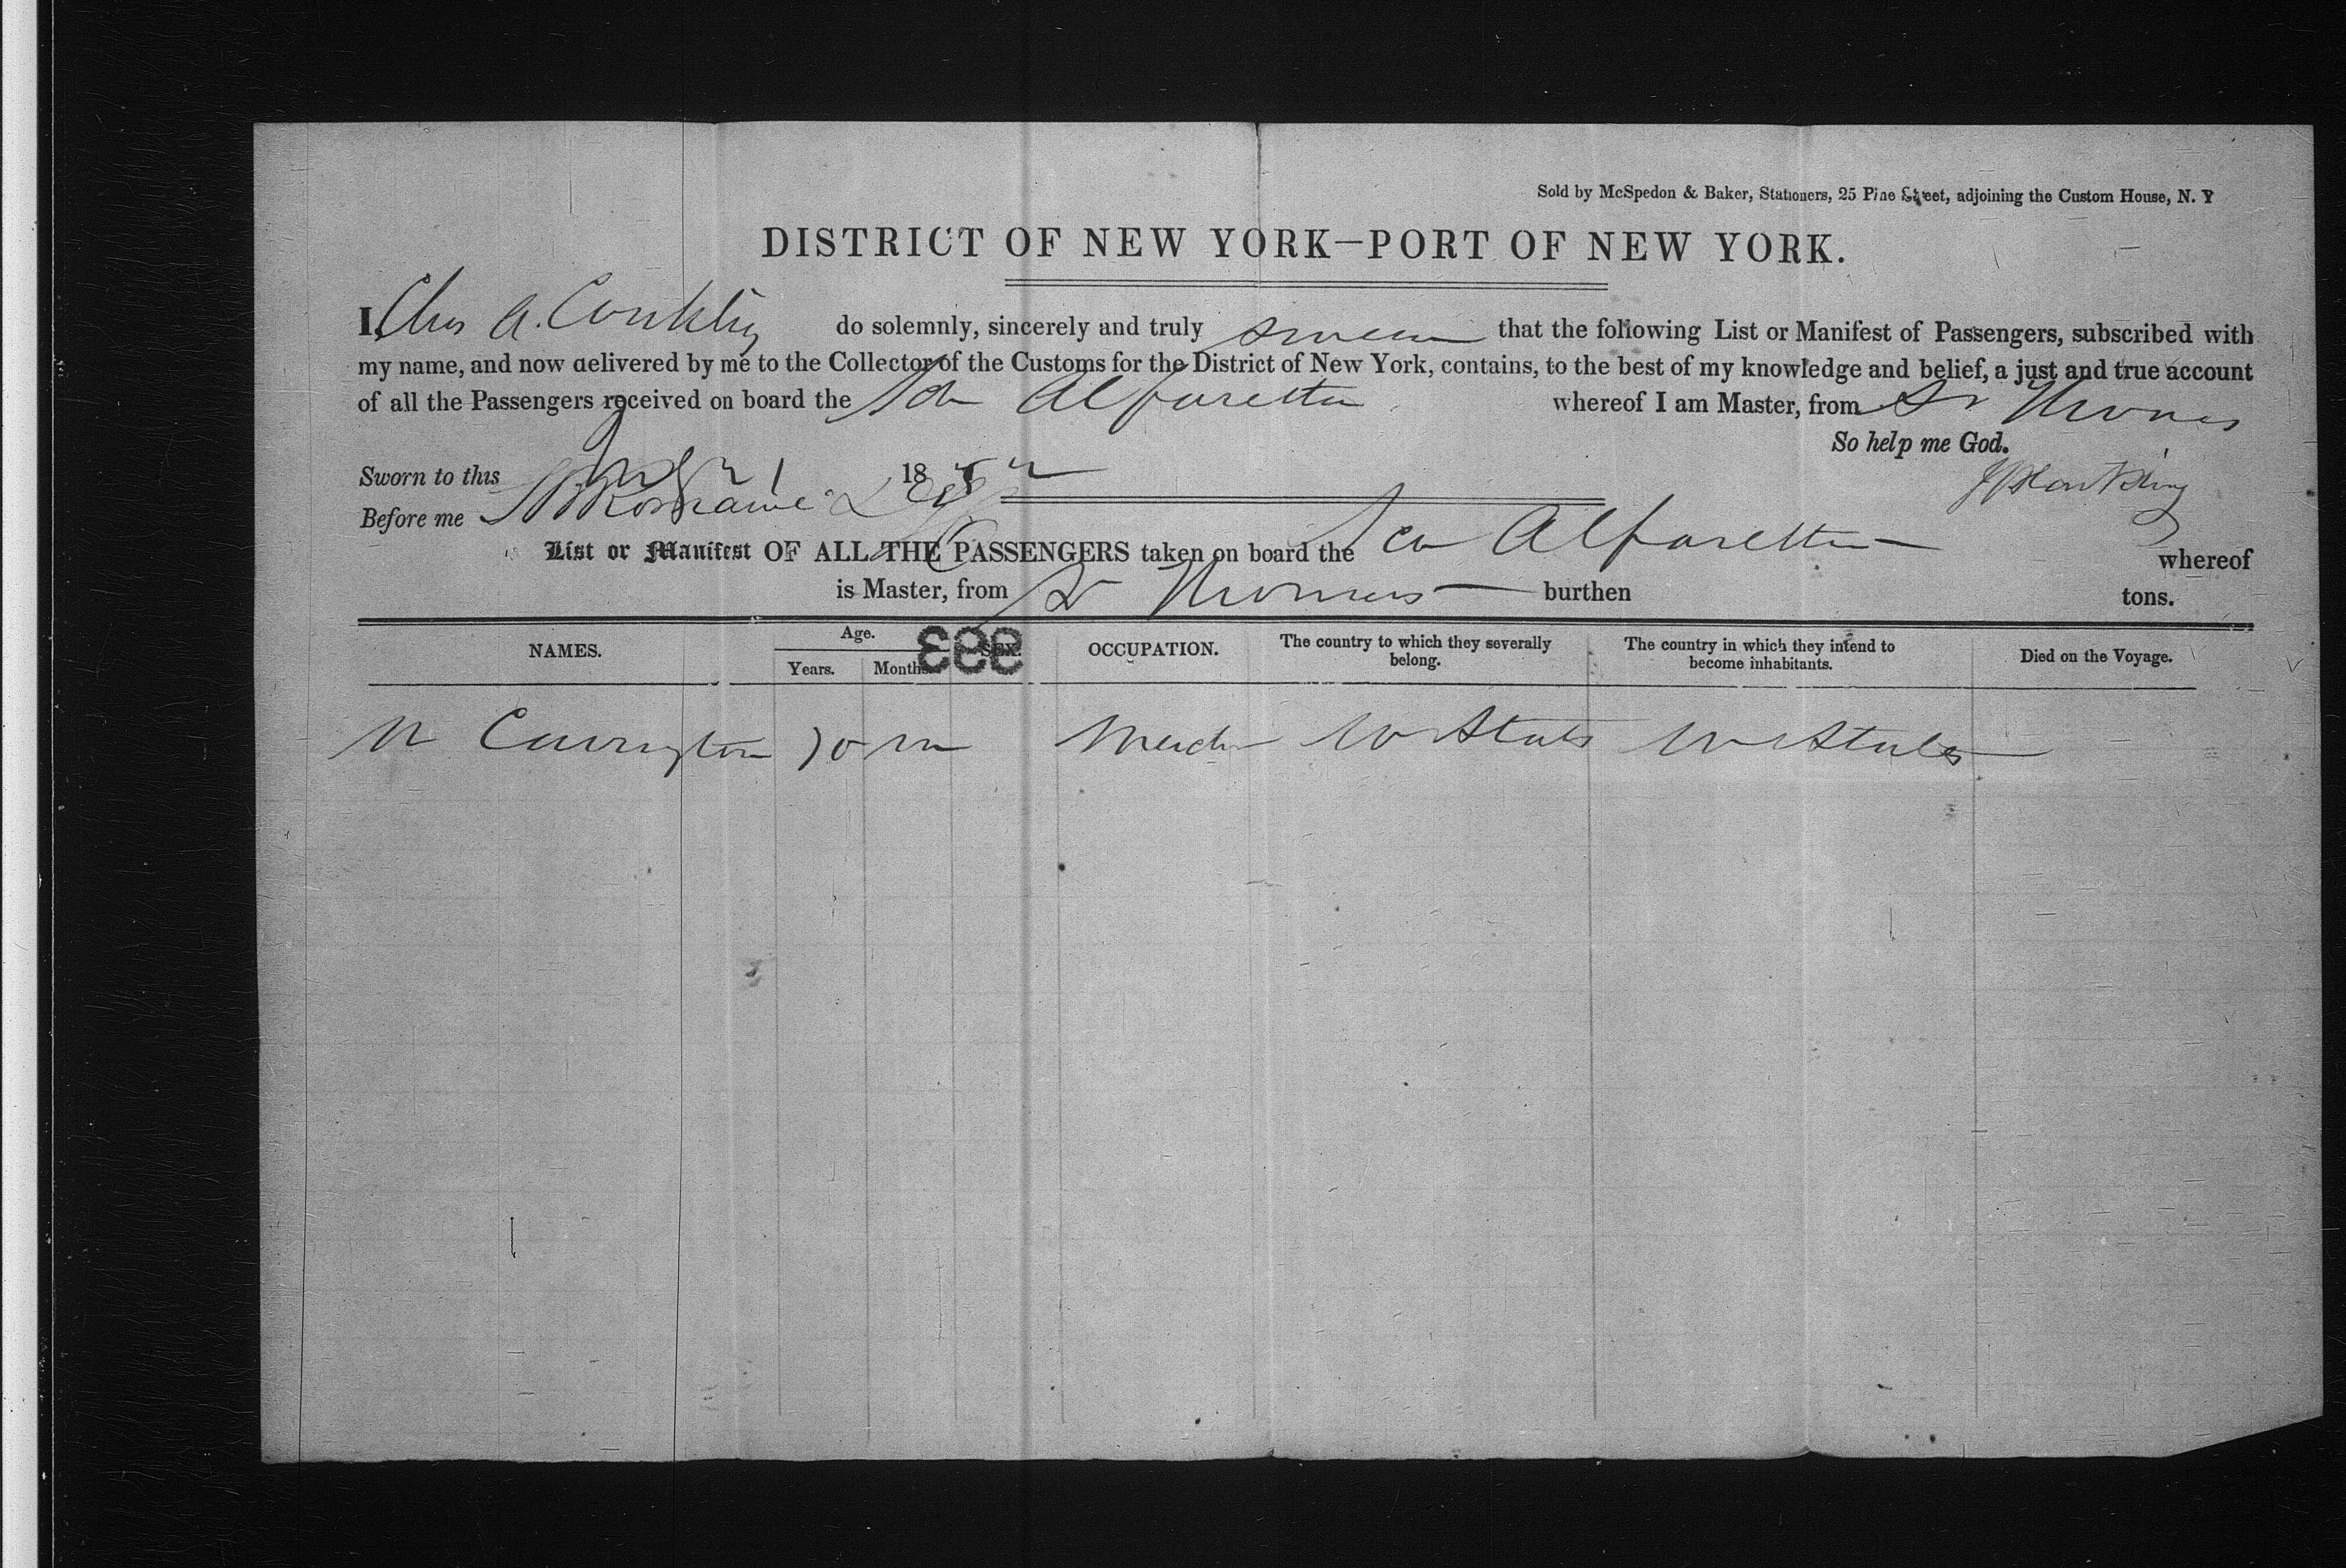 Sold by McSpedon & Baker, Stationers, 25 Pine Street, adjoining the Custom House, N. Y
DISTRICT OF NEW YORK—PORT OF NEW YORK.
I, Chas A. Conkling do solemnly, sincerely and truly swear that the following List or Manifest of Passengers, subscribed with
my name, and now delivered by me to the Collector of the Customs for the District of New York, contains, to the best of my knowledge and belief, a just and true account
of all the Passengers received on board the Sch Alfaretta whereof I am Master, from St Thomas
So help me God.
Sworn to this 21 1852
Before me
List or Manifest OF ALL THE PASSENGERS taken on board the Sch Alfaretta whereof
is Master, from St Thomas burthen tons.
NAMES. Age. Years. Months. SEX. OCCUPATION. The country to which they severally belong. The country in which they intend to become inhabitants. Died on the Voyage.
993
Carrington m Merch U States U States